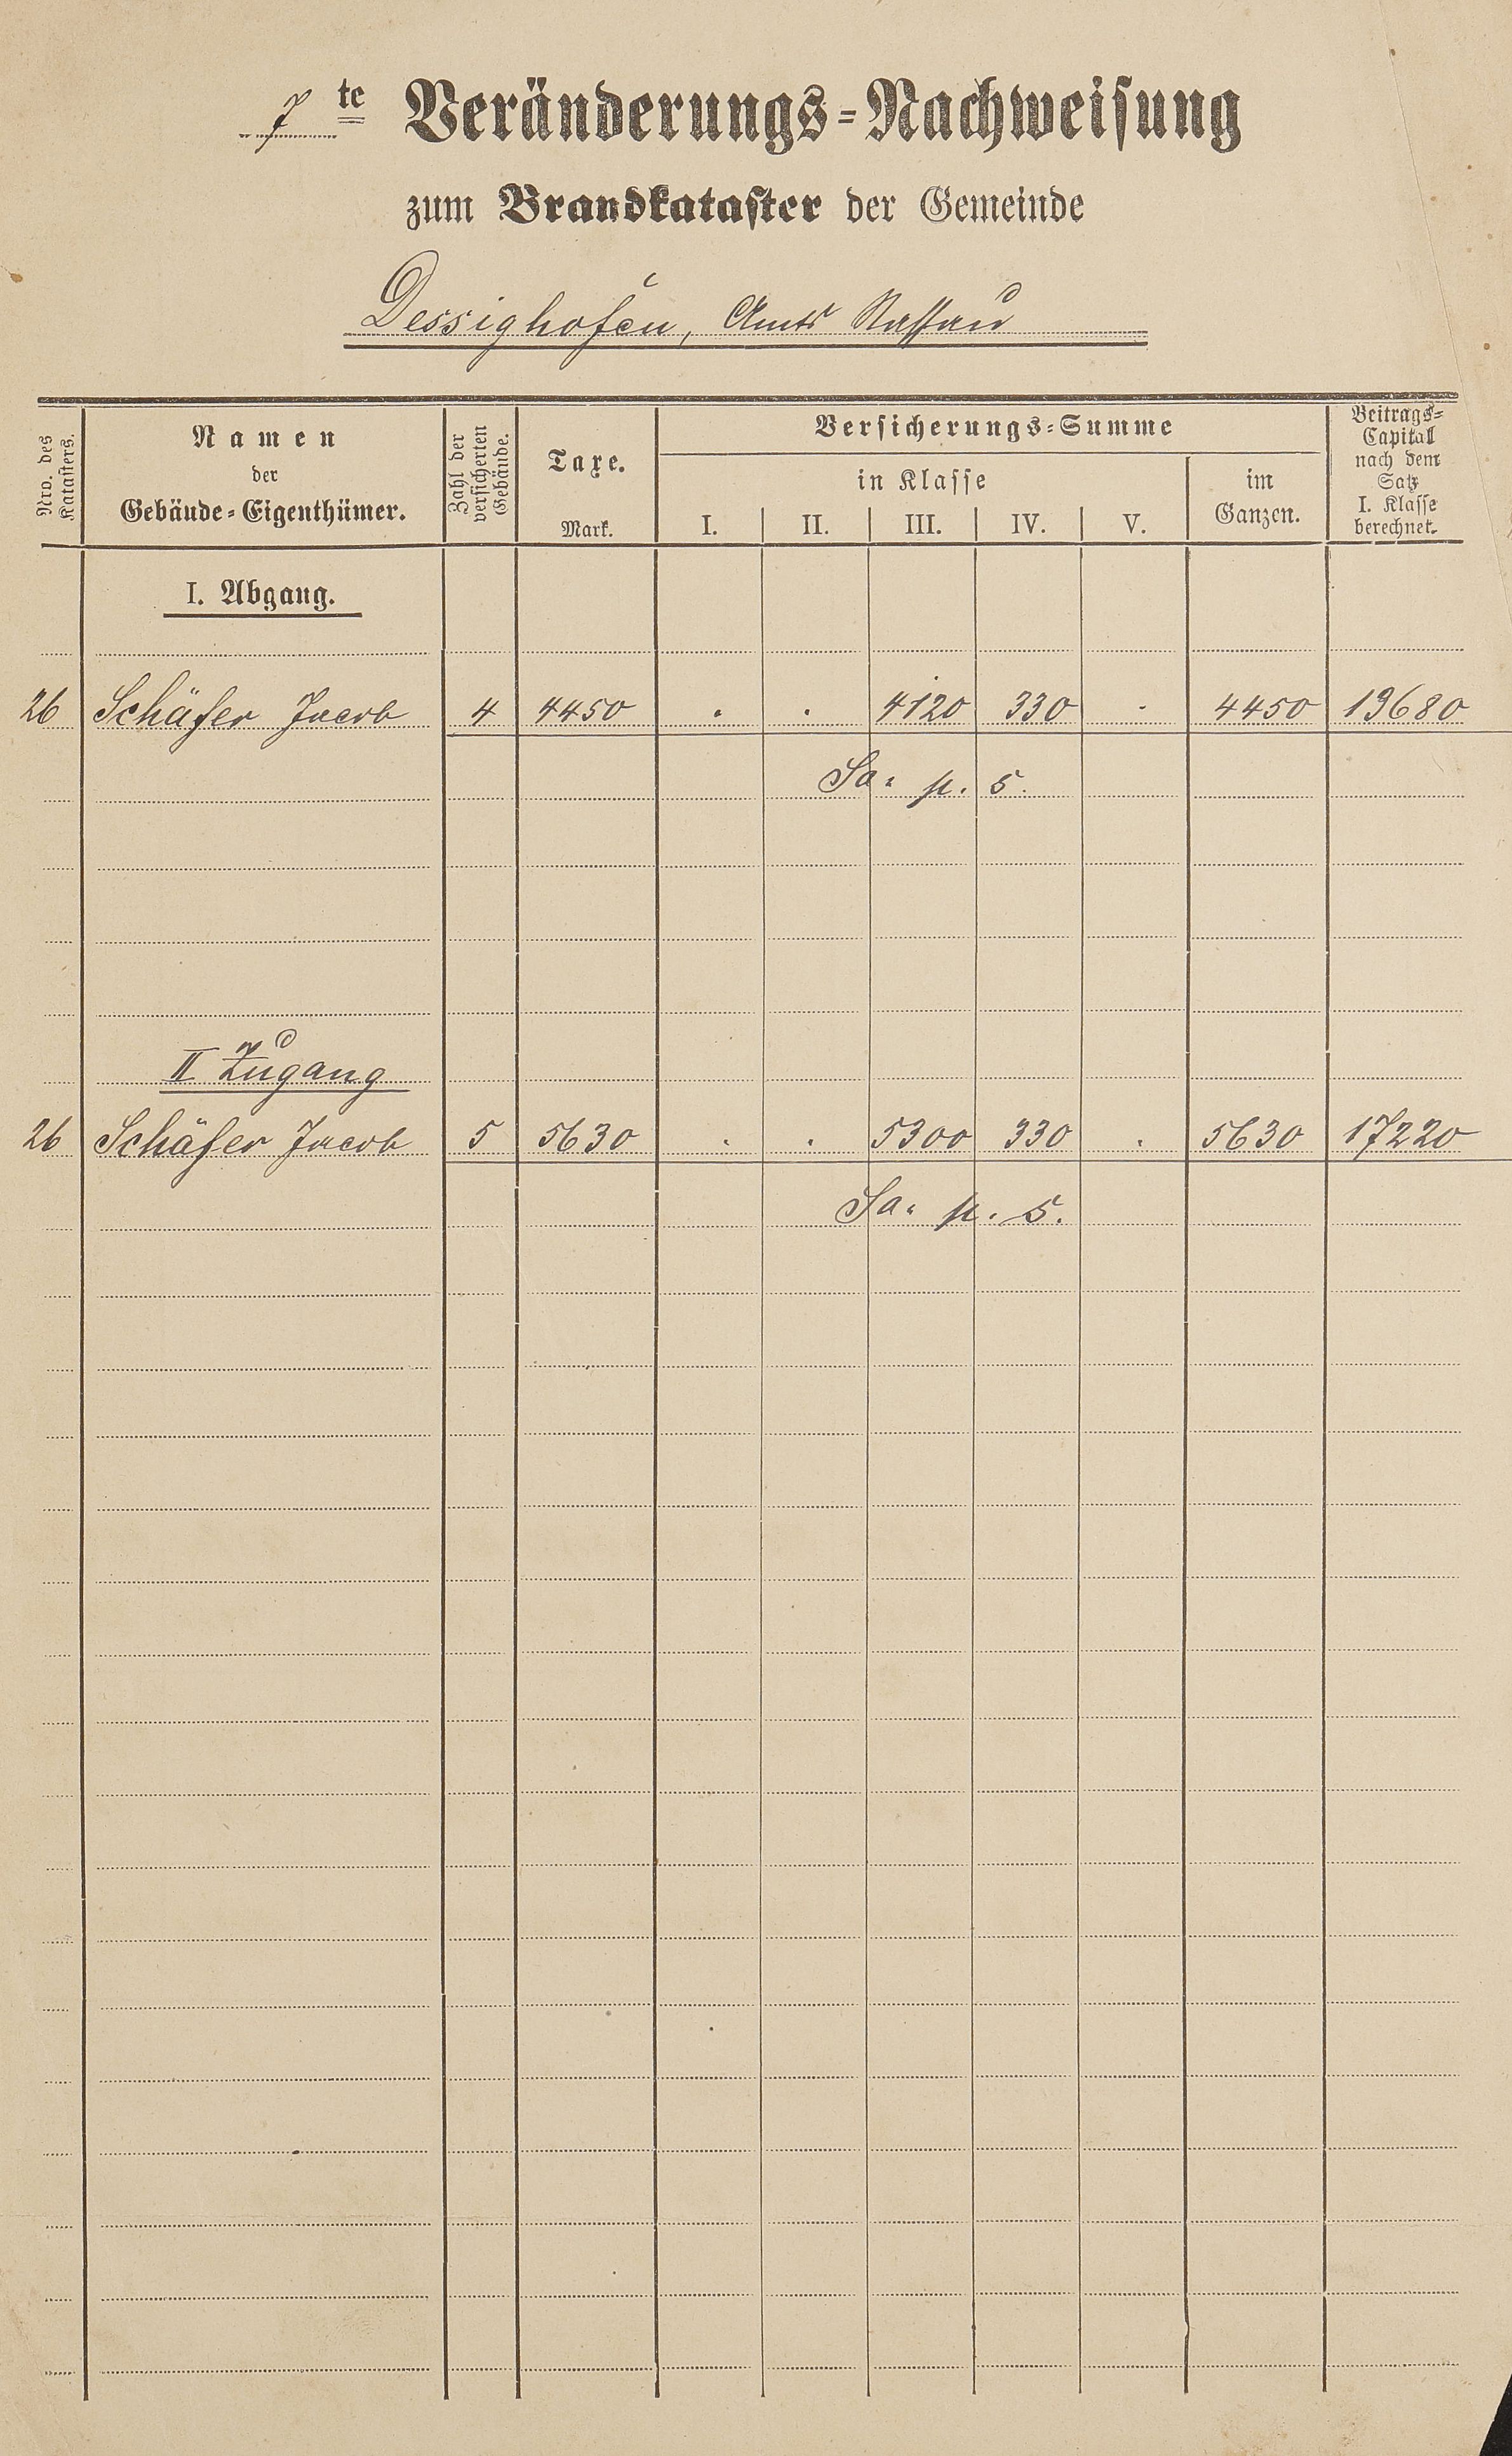 7te Veränderungs-Nachweisung
zum Brandkataster der Gemeinde
Dessighofen, Amts Nassau
Nro. des Katasters.
Namen
der
Gebäude-Eigenthümer.
Zahl der versicherten Gebäude.
Taxe.
Mark.
Versicherungs-Summe
in Klasse
I. II. III. IV. V.
im
Ganzen.
Beitrags-
Capital
nach dem
Satz
I. Klasse
berechnet.
I. Abgang.
26 Schäfer Jacob 4 4450 . . 4120 330 . 4450 13680
Sa. p. s.
II Zugang
26 Schäfer Jacob 5 5630 . . 5300 330 . 5630 17220
Sa. p. s.